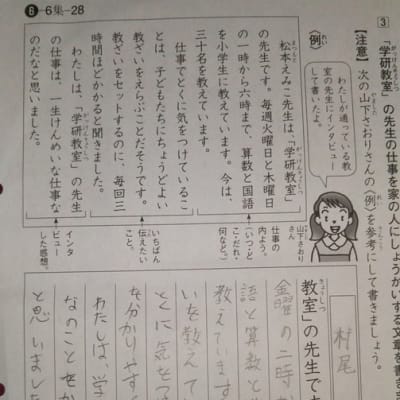 6 6集-28
3
「学研教室」の先生の仕事を家の人にしょうかいする文章を書き
【注意】次の山下さおりさんの〈例〉を参考にして書きましょう。
〈例〉
わたしが通っている教
室の先生にインタビュー
して書いたよ。
松本えみこ先生は、「学研教室」
の先生です。毎週火曜日と木曜日
の一時から六時まで、算数と国語
を小学生に教えています。今は、
三十名を教えています。
仕事でとくに気をつけているこ
とは、子どもたちにちょうどよい
教ざいをえらぶことだそうです。
教ざいをセットするのに、毎回三
時間ほどかかると聞きました。
わたしは、「学研教室」の先生
の仕事は、一生けんめいな仕事な
のだなと思いました。
山下さおり
さん
仕事の
内よう。
（いつ・ど
こ・だれ・
何など。）
いちばん
伝えたい
こと。
インタ
ビュー
した感想。
村尾
教室」の先生で
金曜の二時
語と算数と
教えています
いを教えて
とくに気をつけ
を分かりやす
わたしは、学
なのことをか
と思いました